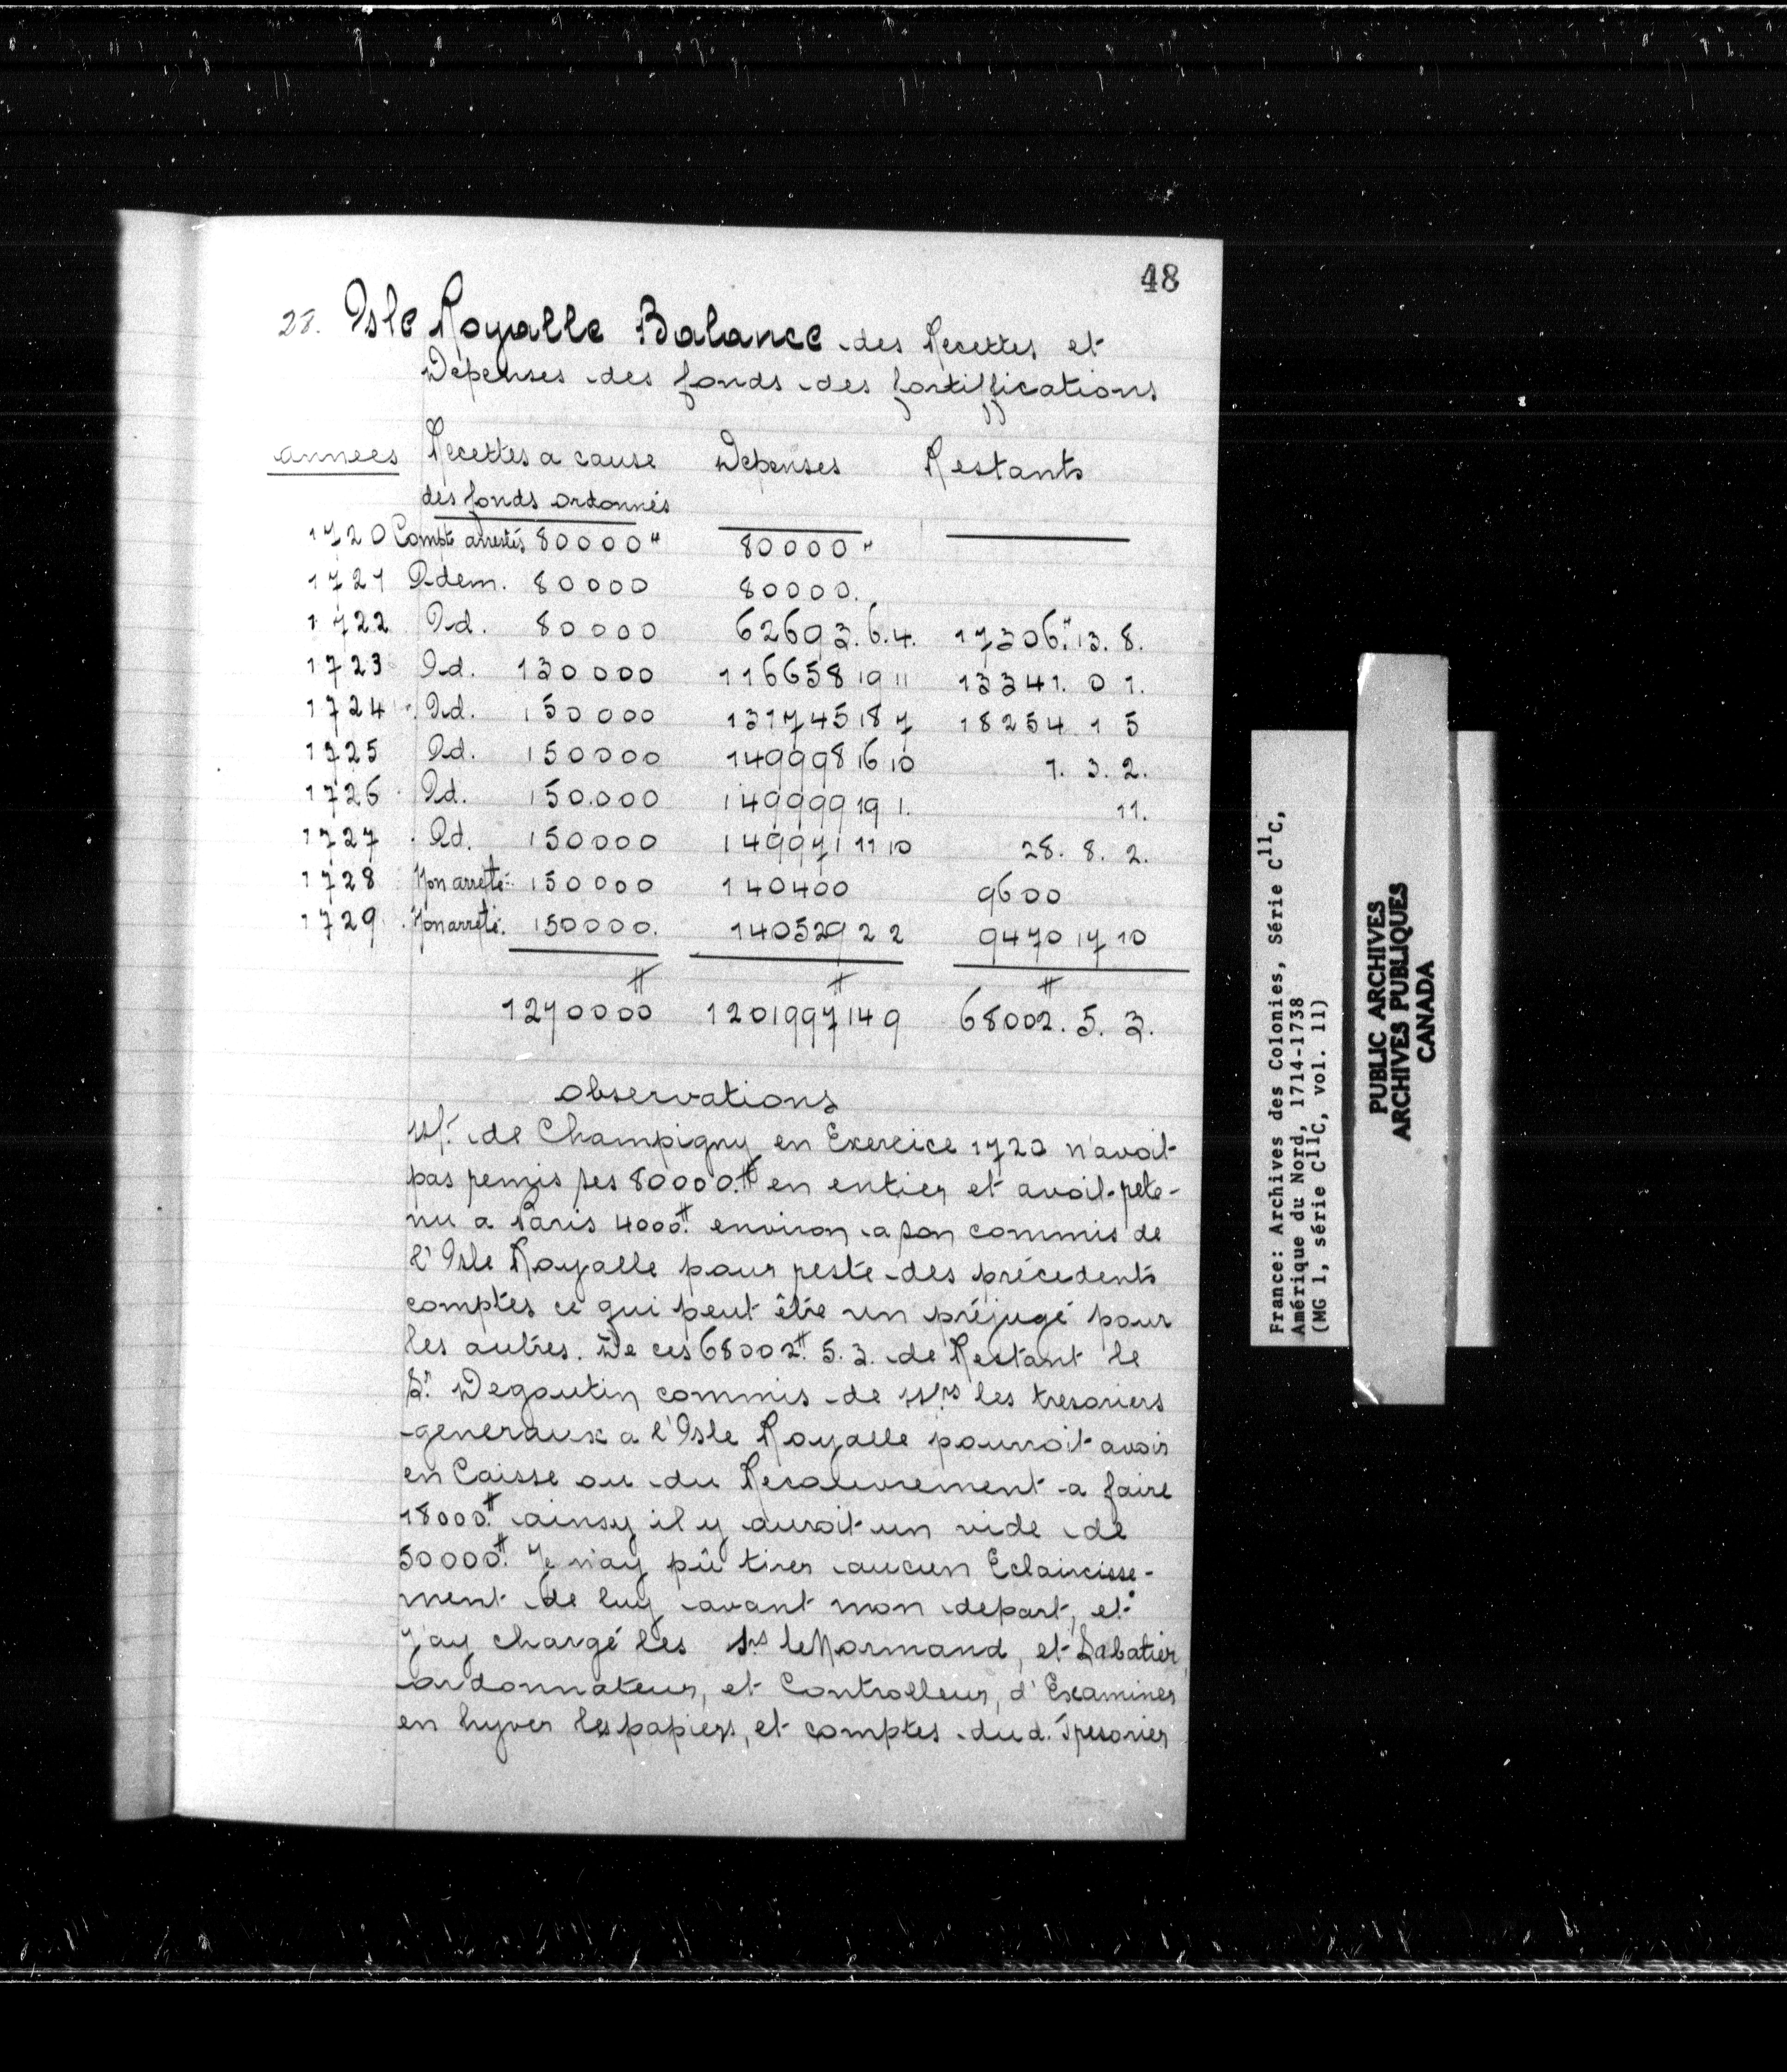 48
28. Isle Royalle Balance des Recettes et
Dépenses des fonds des fortiffications
années Recettes a cause Dépenses Restants
des fonds ordonnés
1720 Compte arrestés 80000" 80000"
1721 Idem. 80000 80000.
1722 Id. 80000 62693. 6. 4. 17306." 13. 8.
1723 Id. 130000 116658 19 11 13341. 0 1.
1724 Id. 150000 131745 18 7 18254 1 5
1725 Id. 150000 149998 16 10 1. 3. 2.
1726 Id. 150.000 149999 19 1. 11.
1727 Id. 150000 149971 11 10 28. 8. 2.
1728 Non arreté 150000 140400 9600
1729 Non arreté. 150000. 140529 2 2 9470 17 10
1270000# 1201997 14 9# 68002. 5. 3.#
observations
Mr. de Champigny en Exercice 1720 n'avoit
pas remis ses 80000.# en entier et avoit rete-
nu a Paris 4000.# environ a son commis de
l'Isle Royalle pour reste des précedents
comptes ce qui peut être un préjugé pour
les autres. De ces 68002.# 5. 3. de Restant le
Sr. Degoutin commis de Mrs les tresoriers
generaux a l'Isle Royalle pourroit avoir
en Caisse ou du Recouvrement a faire
18000.# ainsy il y auroit un vide de
50000.# Je n'ay pû tirer aucun Eclaircisse-
ment de luy avant mon depart, et
J'ay chargé les Srs leNormand, et Sabatier,
ordonnateur, et Controlleur, d'Examiner
en hyver les papiers, et comptes du d. Tresorier
France: Archives des Colonies, Série C11C,
Amérique du Nord, 1714-1738
(MG 1, série C11C, vol. 11)
PUBLIC ARCHIVES
ARCHIVES PUBLIQUES
CANADA